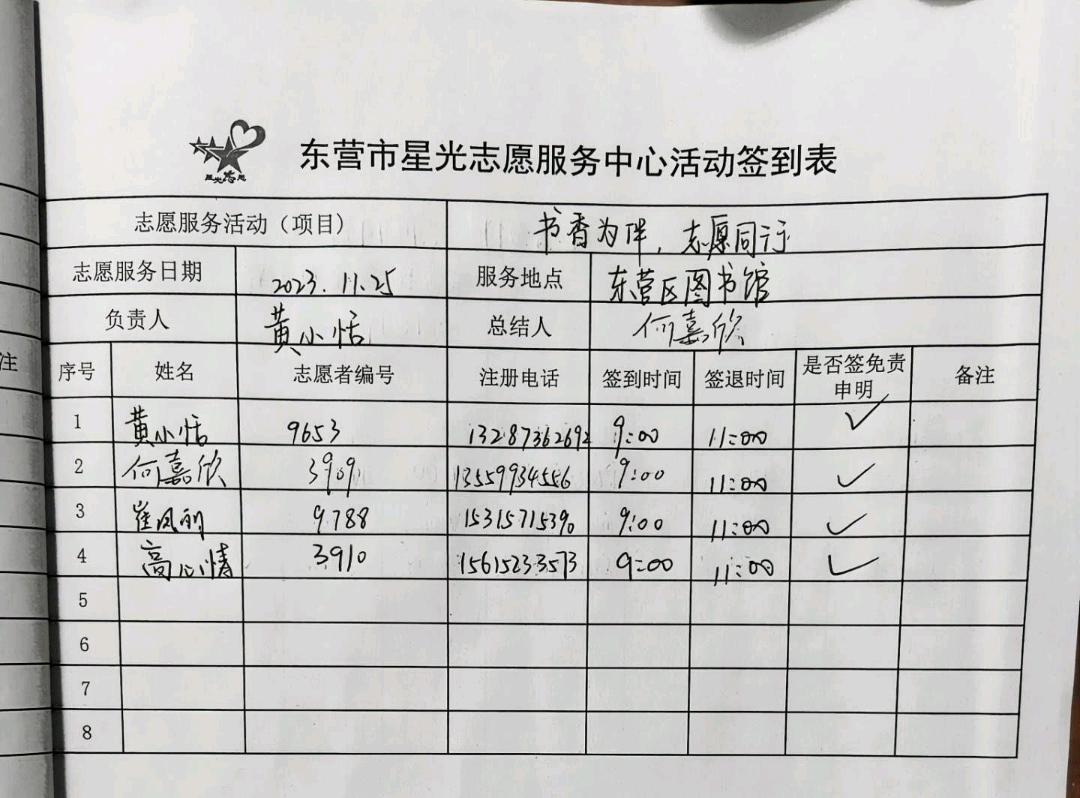 星光志愿
东营市星光志愿服务中心活动签到表
志愿服务活动（项目） 书香为伴，志愿同行
志愿服务日期 2023.11.25 服务地点 东营区图书馆
负责人 黄小恬 总结人 何嘉欣
序号 姓名 志愿者编号 注册电话 签到时间 签退时间 是否签免责申明 备注
1 黄小恬 9653 13287362692 9:00 11:00 ✓
2 何嘉欣 3909 13559934556 9:00 11:00 ✓
3 崔凤明 9788 15315715390 9:00 11:00 ✓
4 高心情 3910 15615233573 9:00 11:00 ✓
5
6
7
8
注